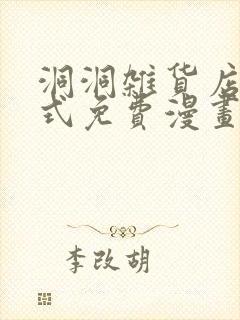 洞洞雜貨店
式免費漫畫
李改胡